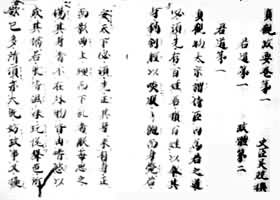 貞觀政要卷第一
史臣吳兢撰
君道第一 政體第二
君道第一
貞觀初太宗謂侍臣曰為君之道
必須先存百姓若損百姓以奉其
身猶割脛以啖腹飽而身斃若
安天下必須先正其身未有身正
而影曲上理而下亂者朕每思之
傷其身者不在外物皆由嗜慾以
成其禍若耽嗜滋味玩悅聲色所
欲既多所損亦大既妨政事又擾